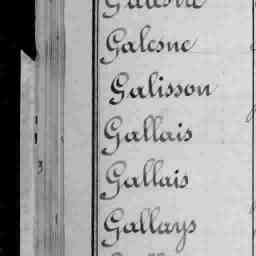 Galesne
Galisson
Gallais
3
Gallais
Gallays